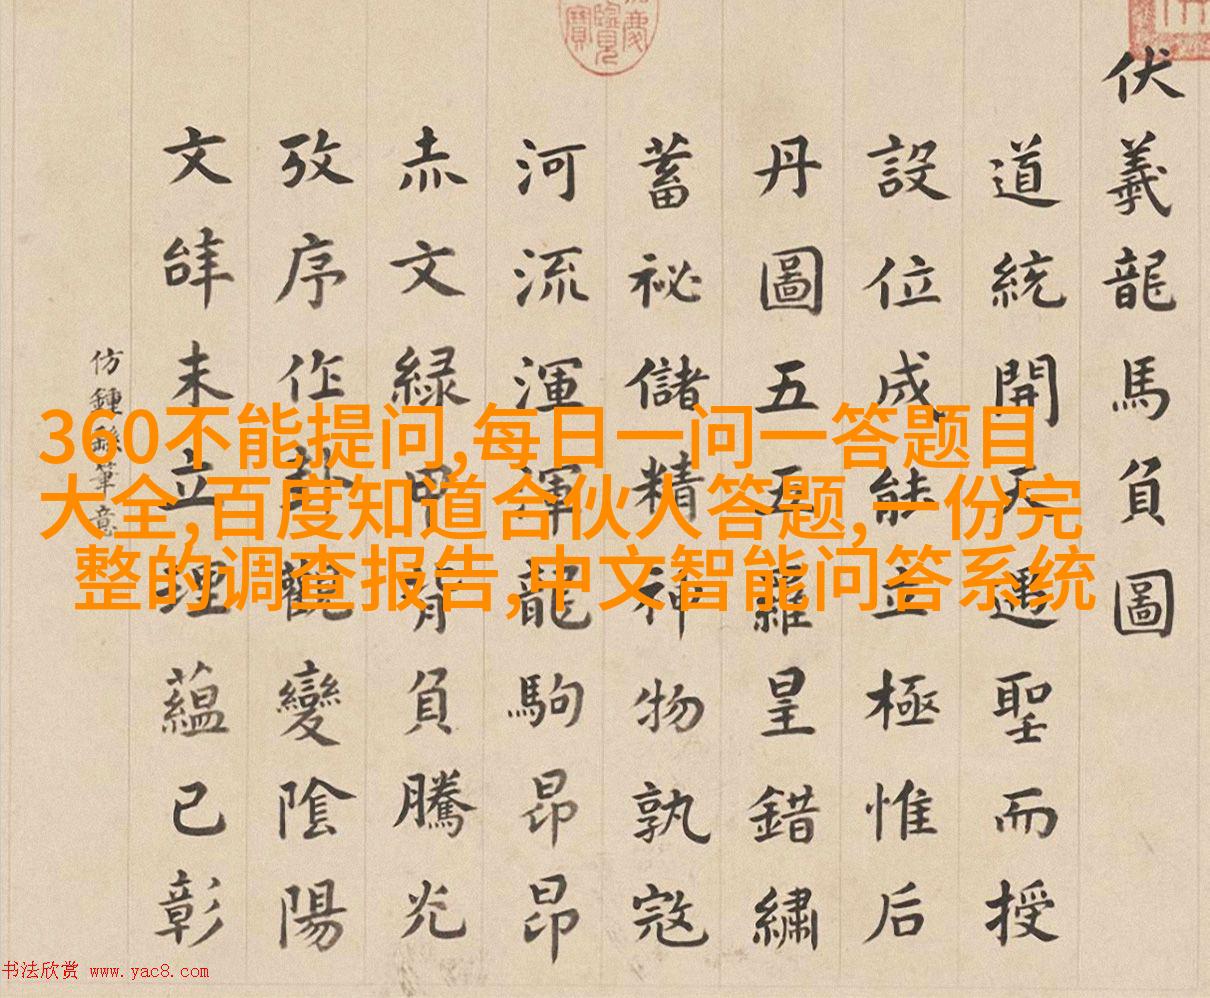 伏羲龍馬負圖
道統開天遇聖而授
設位成能立極惟后
丹圖五五羅皇錯繡
蓄祕儲精神物孰寇
河流渾渾龍駒昂昂
赤文緑甲背負騰光
攷序作卦觀變陰陽
文辝未立理蘊已彰
仿鍾繇筆意
360不能提问,每日一问一答题目
大全,百度知道合伙人答题,一份完
整的调查报告,中文智能问答系统
书法欣赏 www.yac8.com